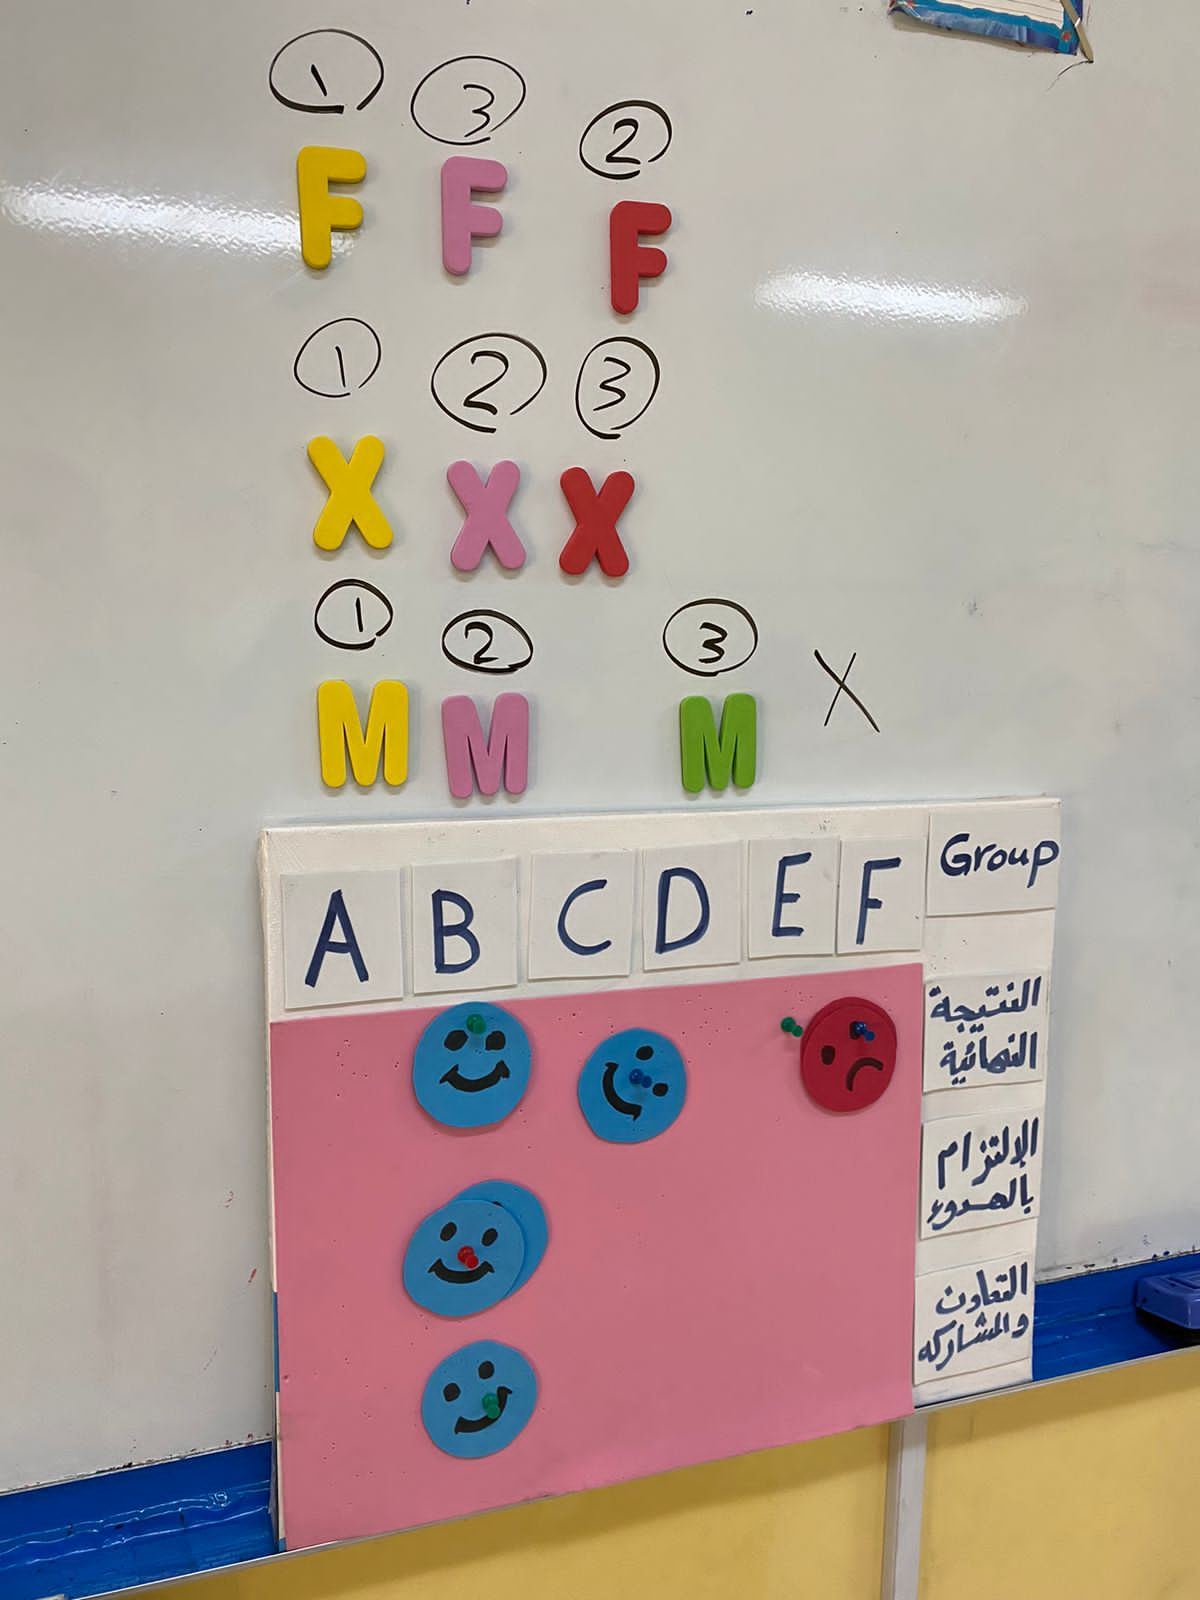 1 3 2
F F F
1 2 3
X X X
1 2 3
M M M X
A B C D E F Group
النتيجة
النهائية
الإلتزام
بالهدوء
التعاون
والمشاركه